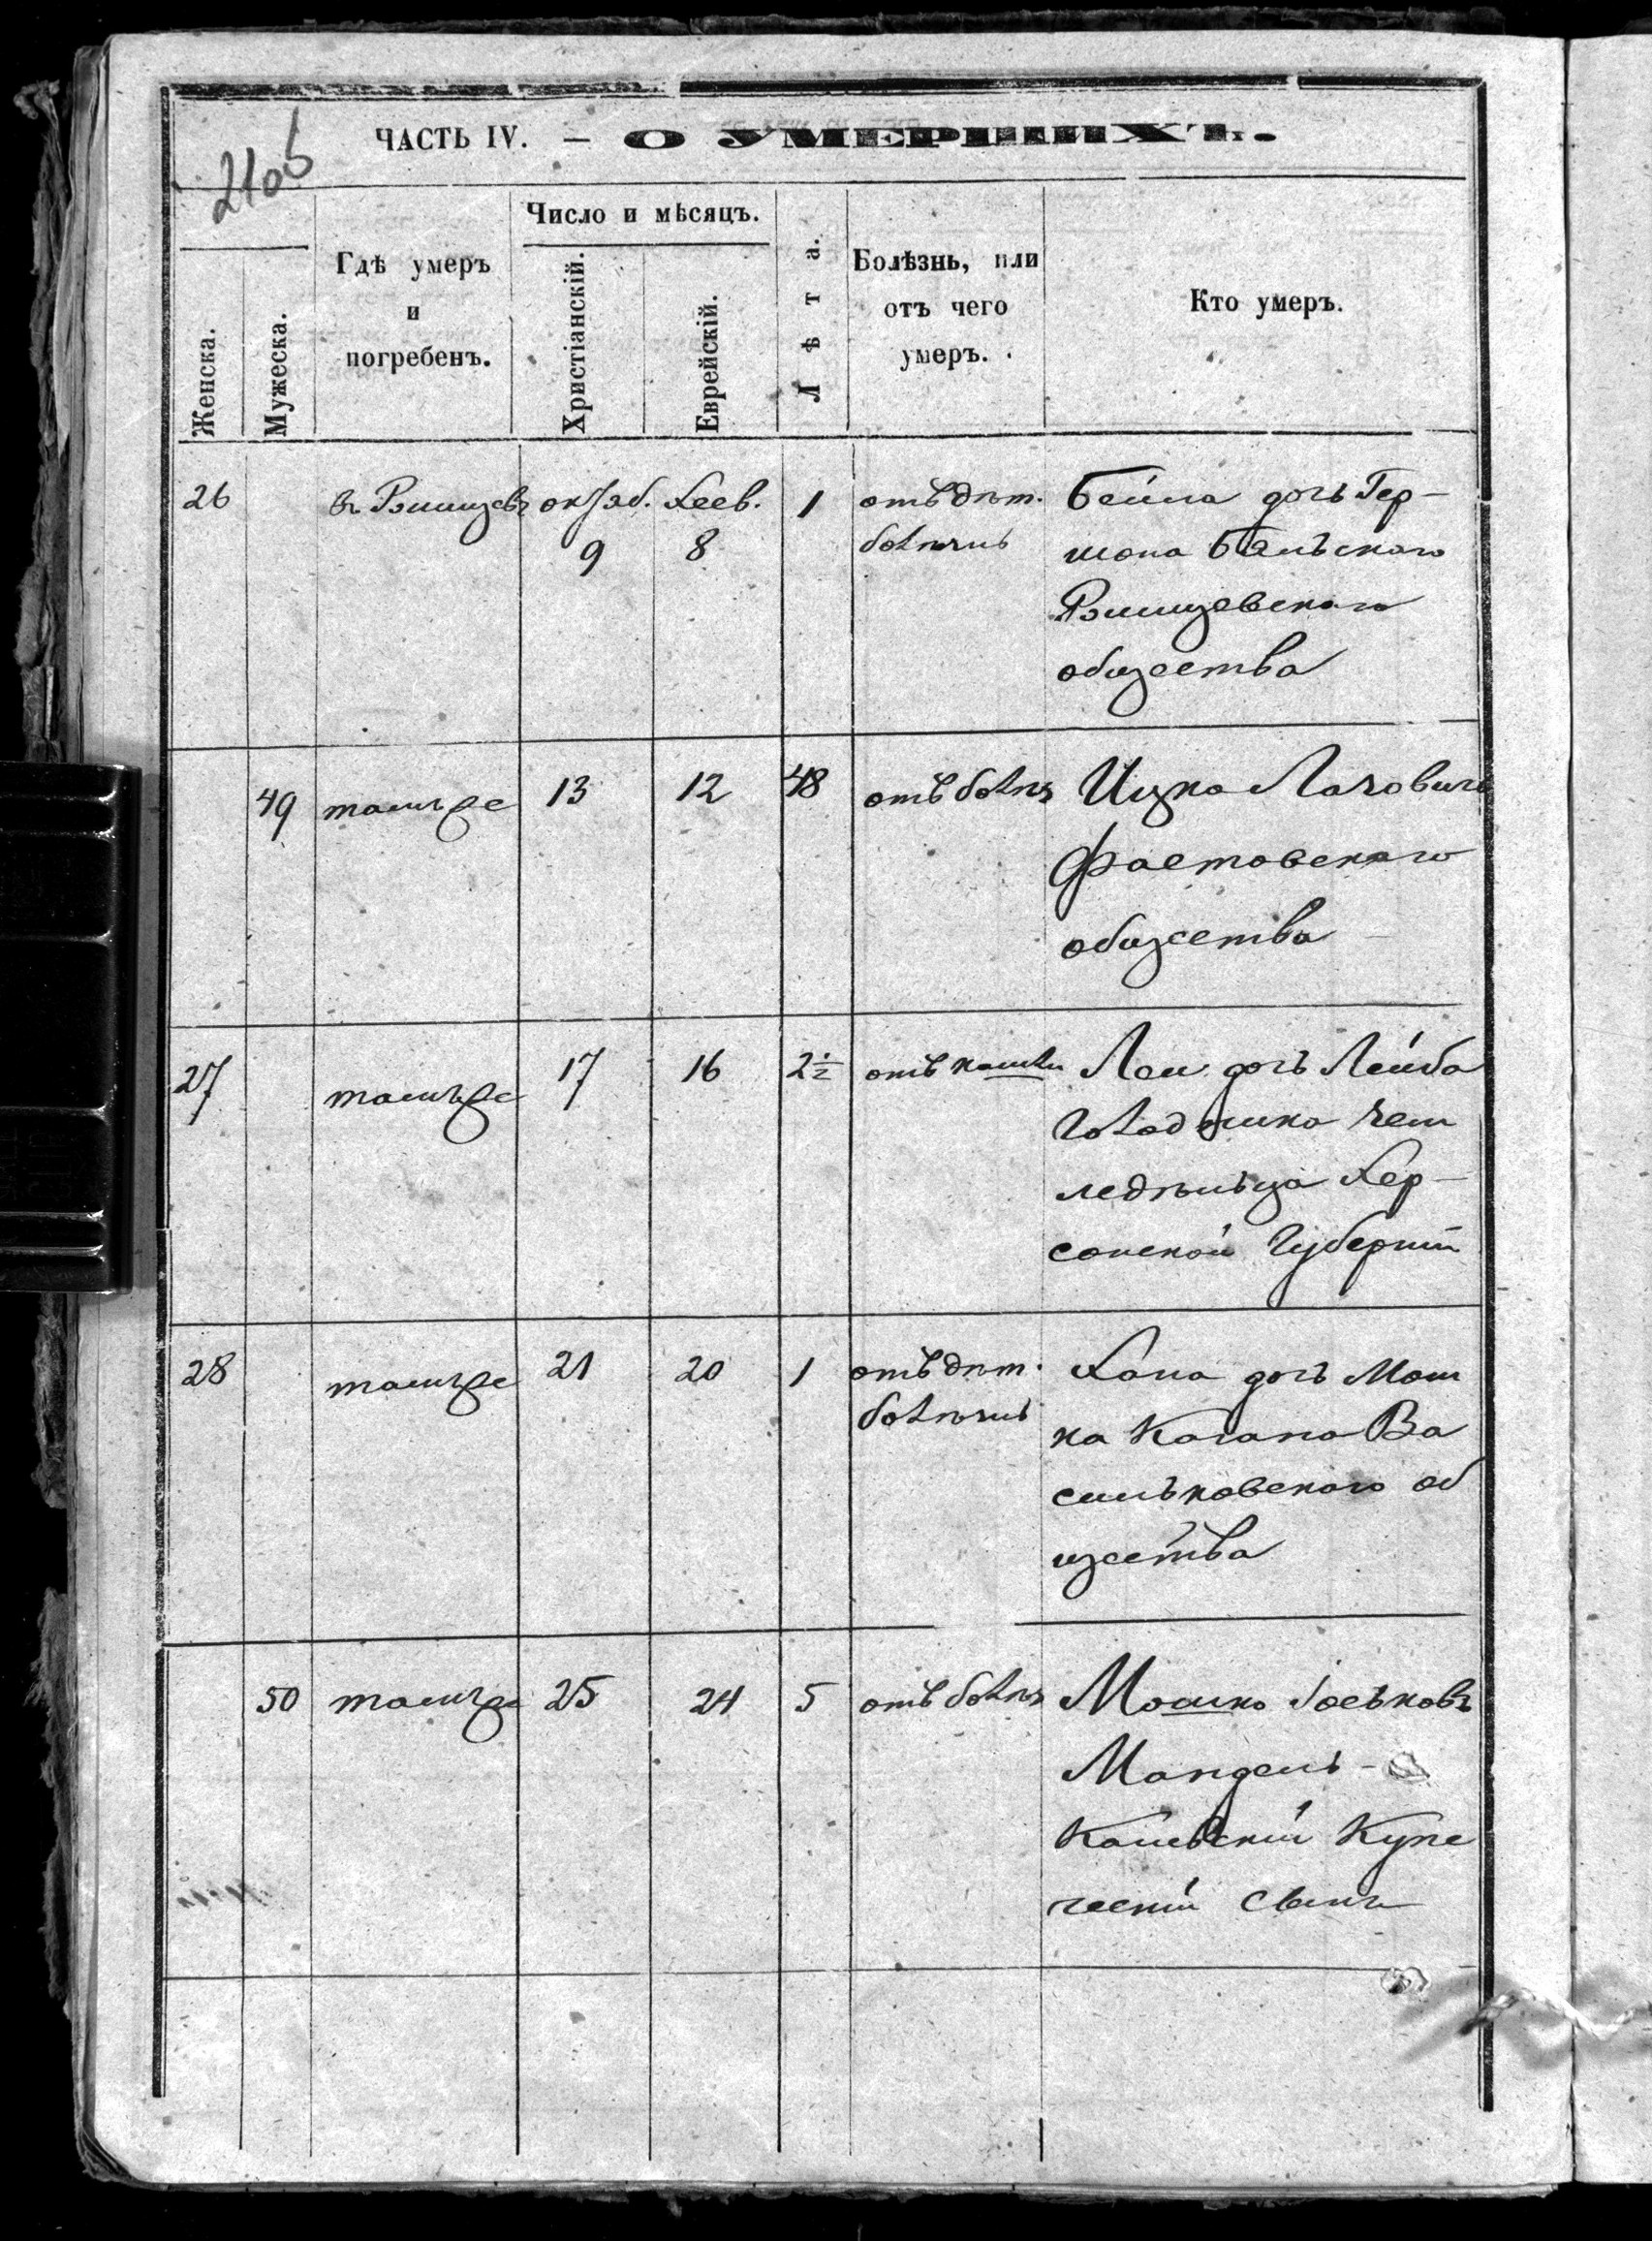 210б
ЧАСТЬ IV. — О УМЕРШИХЪ.
Женска.
Мужеска.
Гдѣ умеръ
и
погребенъ.
Число и мѣсяцъ.
Христіанскій.
Еврейскій.
Лѣта.
Болѣзнь, или
отъ чего
умеръ.
Кто умеръ.
26 въ Ржищевѣ октяб. Хесв. 1 отъ дѣт. Бейла дочь Гер-
9 8 болѣзнь шона Бѣльского
Ржищевского
общества
49 тамъже 13 12 48 отъ болѣз Ицко
Фастовского
общества
27 тамъже 17 16 2½ отъ кашли Леи дочь Лейба
Голод
ледѣльца Хер-
сонской Губерніи
28 тамъже 21 20 1 отъ дѣт. Хана дочь Мош
болѣзнь ка Кагана Ва
сильковского об
щества
50 тамъже 25 24 5 отъ болѣз Мошко Іоськовъ
Мандель-
Каневскій Купе
ческій сынъ